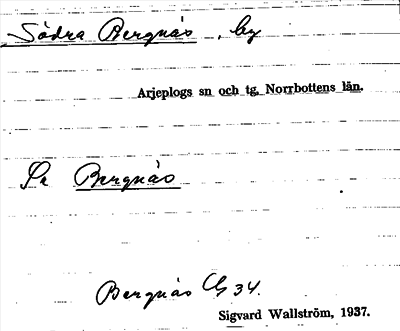 Södra Bergnäs, by
Arjeplogs sn och tg, Norrbottens län.
Se Bergnäs
Bergnäs 34.
Sigvard Wallström, 1937.